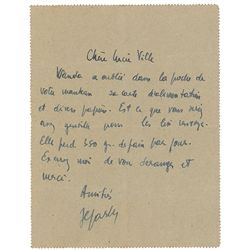 Chère Lucie Ville
Wanda a oublié dans la poche de
votre manteau sa carte d'alimentation
et divers papiers. Est ce que vous seriez
assez gentille pour les lui envoyer.
Elle perd 350 gr. de pain par jour.
Excusez moi de vous déranger et
merci.
Amitiés